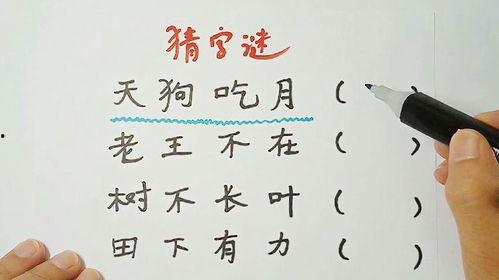 猜字谜
天狗吃月( )
老王不在( )
树不长叶( )
田下有力( )